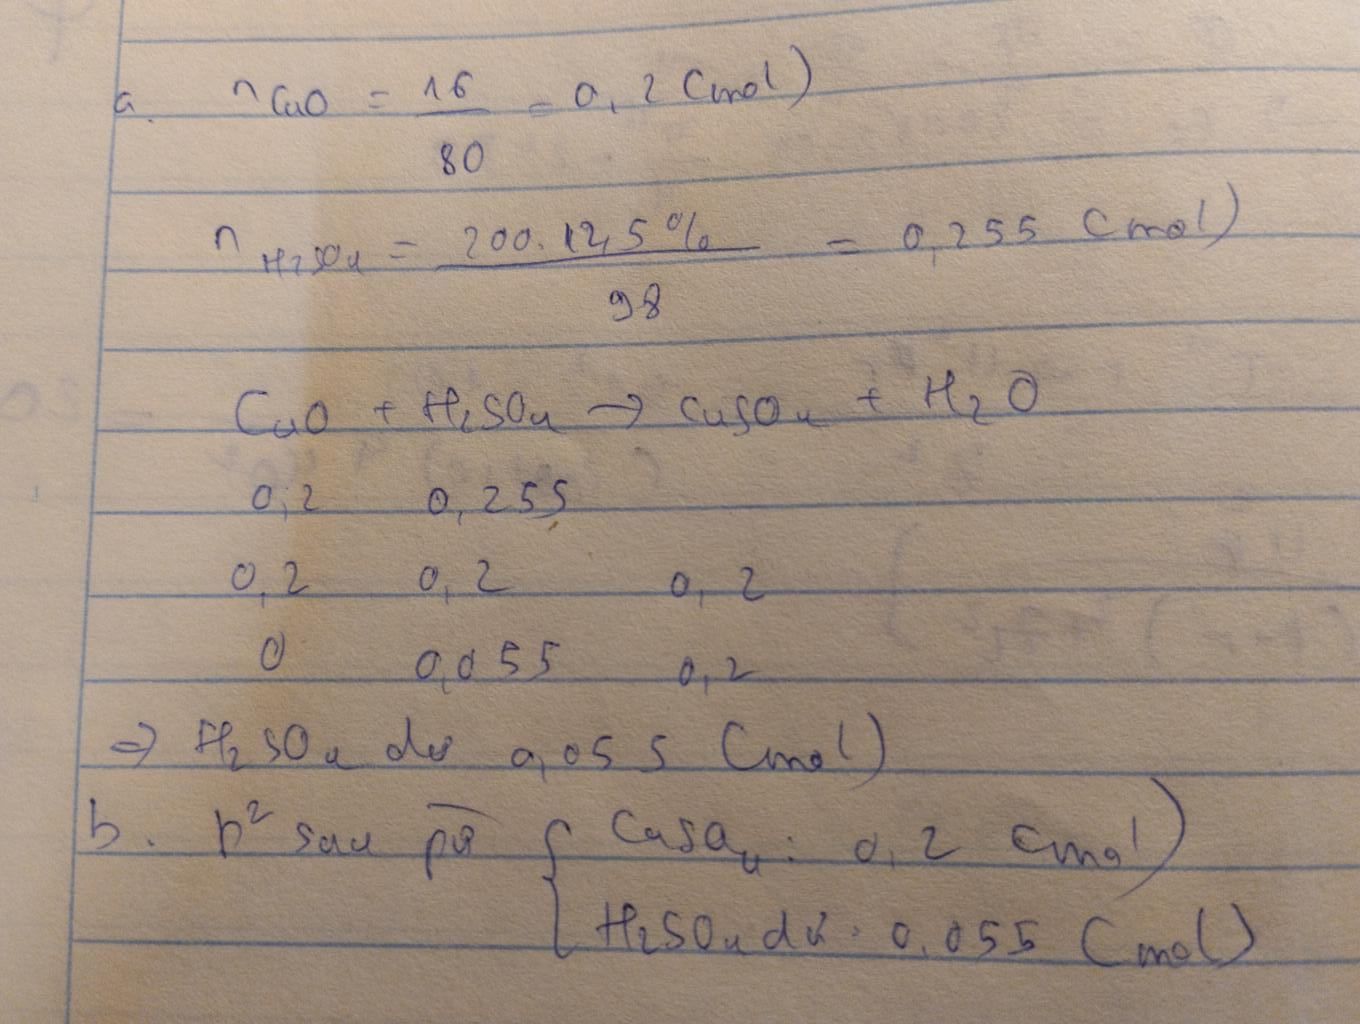 a. nCuO = 16/80 = 0,2 (mol)
nH2SO4 = 200.12,5%/98 = 0,255 (mol)
CuO + H2SO4 → CuSO4 + H2O
0,2 0,255
0,2 0,2 0,2
0 0,055 0,2
⇒ H2SO4 dư 0,055 (mol)
b. p² sau pứ { CuSO4: 0,2 (mol)
H2SO4 dư: 0,055 (mol)